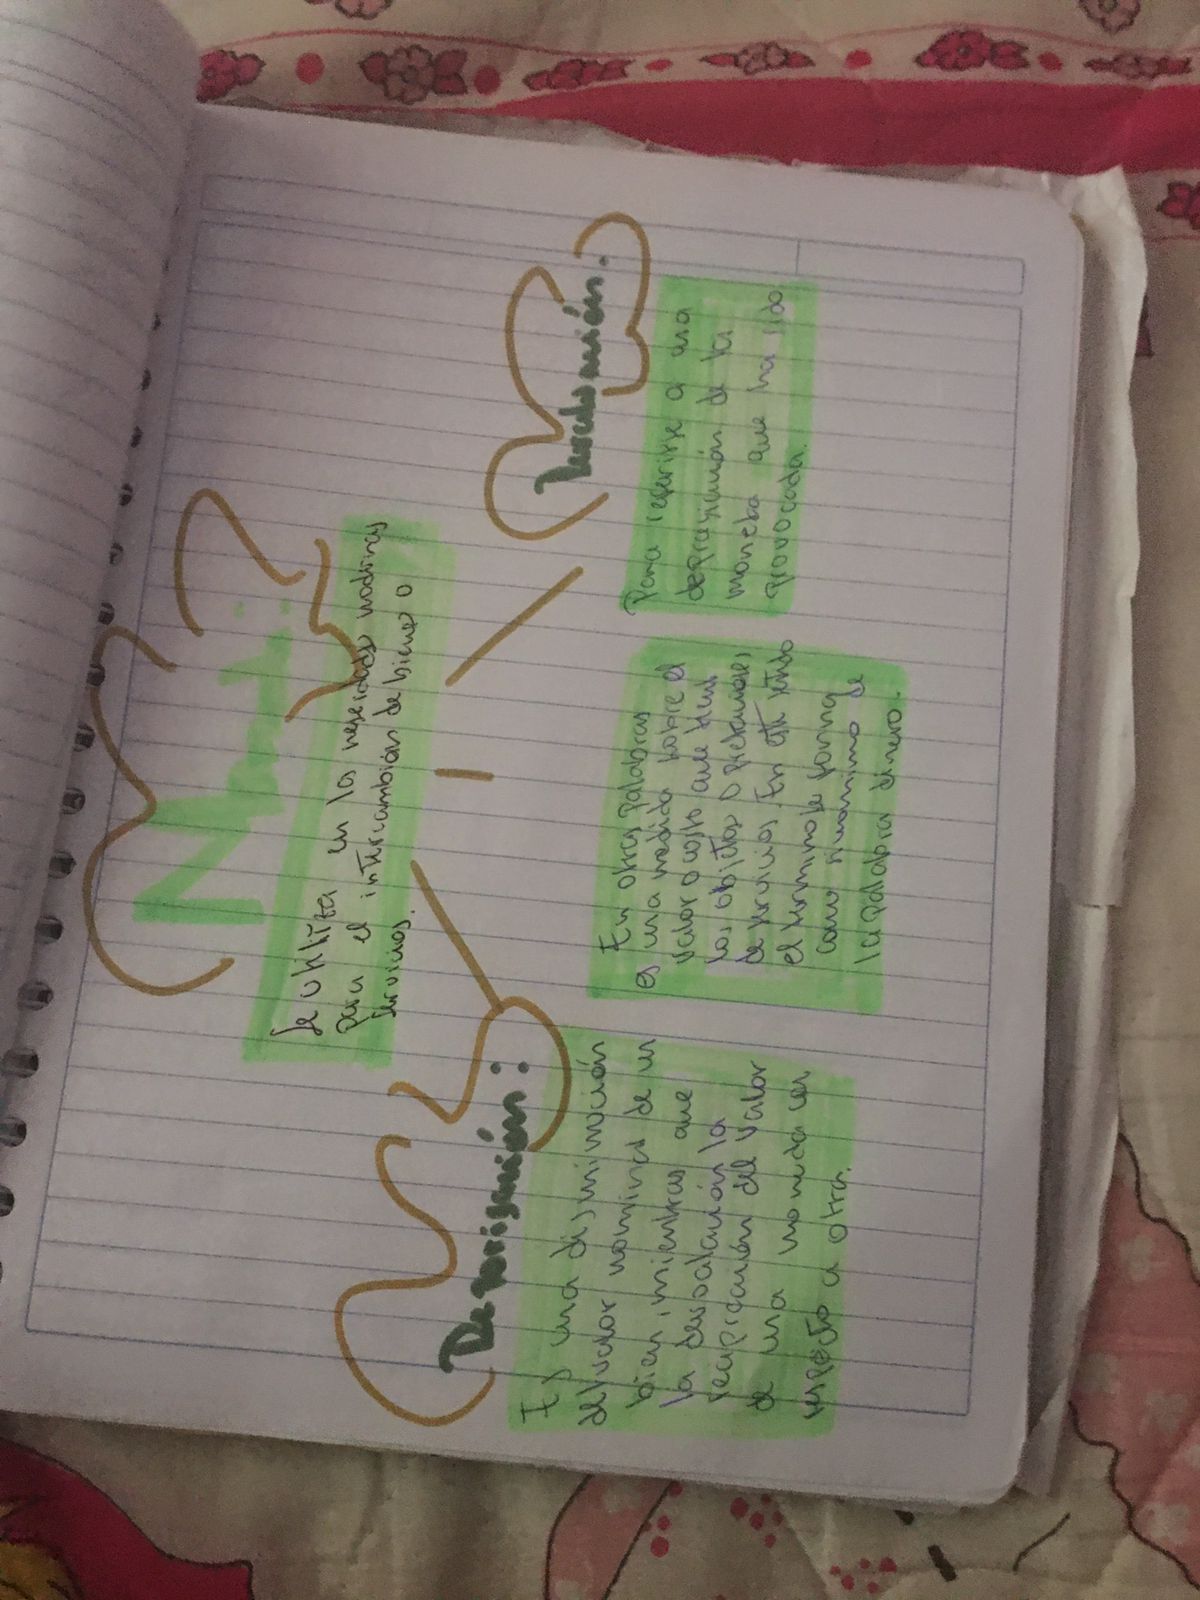 Se utiliza en las sociedades modernas
para el intercambión de bienes o
servicios.
Depresición:
Es una disminución
del valor nominal de un
bien, mientras que
la devaluación la
del valor
de una moneda con
respecto a otra.
En otras palabras
es una medida sobre el
valor o costo que tienen
los objetos o prestaciones
de servicios. En este sentido
el termino se forma
como sinonimo de
la palabra dinero.
Devaluación.
Para referirse a una
depreciación de la
moneba que ha sido
provocada.